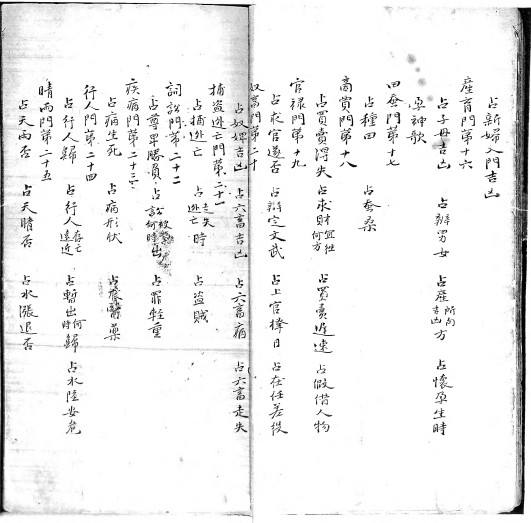 占新婦入門吉凶
產育門第十六
占子母吉凶 占辨男女 占產所向方吉凶 占懷孕生時
巫神歌
田蚕門第十七
占種田 占蚕桑
商賈門第十八
占買賣得失 占求財宜往何方 占買賣遲速 占假借人物
官祿門第十九
占求官遂否 占辯定文武 占上官擇日 占在任差役
奴畜門第二十
占奴婢吉凶 占六畜吉凶 占六畜病 占六畜走失
捕盜逃亡門第二十一
占捕逃亡 占走失逃亡時 占盜賊
詞訟門第二十二
占尊卑勝負 占訟被何時出 占罪輕重
疾病門第二十三
占病生死 占病形狀 占醫藥
行人門第二十四
占行人歸 占行人存亡遠近 占暫出何時歸 占水陸安危
晴雨門第二十五
占天雨否 占天晴否 占水漲退否